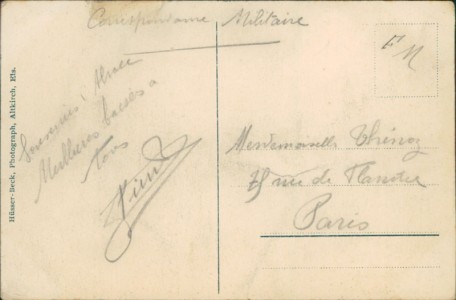 Correspondance Militaire
F M
Souvenir d'Alsace
Meilleurs baisers a
Tous
Mesdemoiselles
rue de Flandre
Paris
Hüsser-Beck, Photograph, Altkirch, Els.